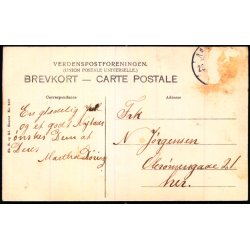 VERDENSPOSTFORENINGEN.
(UNION POSTALE UNIVERSELLE.)
BREVKORT — CARTE POSTALE
Correspondance
Adresse
En glædelig Jul
og et godt Nytaar
ønskes Dem af
Deres
Martha
Frk
N Jörgensen
her.